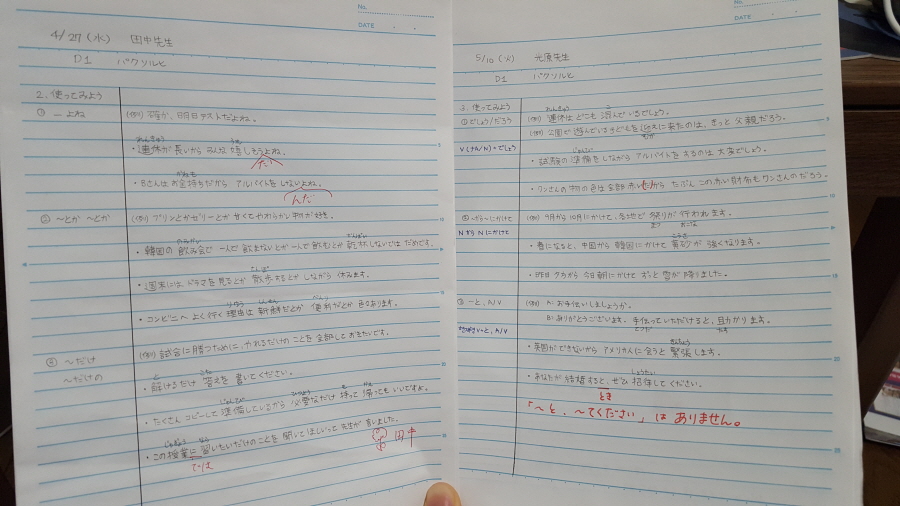 No.
DATE . .
4/27(水) 田中先生
D1 パクソルヒ
2.使ってみよう
① ーよね
(例) 確か、明日テストだよね。
れんきゅう うれ
・連休が長いからBさんは嬉しそうよね。
だ
かねも
・Bさんはお金持ちだからアルバイトをしないよね。
んだ
② ~とか ~とか
(例) プリンとかゼリーとか甘くてやわらかい物が好き。
のみかい かんぱい
・韓国の飲み会で一人で飲まないとか一人で飲むとか乾杯しないではだめです。
さんぽ
・週末にはドラマを見るとか散歩するとかしながら休みます。
りゆう しんせん べんり
・コンビニへよく行く理由は新鮮だとか便利だとか色々あります。
③ ~だけ
~だけの
(例) 試合に勝つために、やれるだけのことを全部しておきたいです。
と こた
・解けるだけ答えを書いてください。
じゅんび ひつよう も かえ
・たくさんコピーして準備しているから必要なだけ持って帰ってもいいですよ。
じゅぎょう なら
・この授業に習いたいだけのことを聞いてほしいって先生が言いました。
では
田中
No.
DATE . .
5/10(火) 光原先生
D1 パクソルヒ
3.使ってみよう
① でしょう/だろう
V(ナA/N)+でしょう
れんきゅう こ
(例) 連休はどこも混んでいるでしょう。
(例) 公園で遊んでいる子どもを迎えに来たのは、きっと父親だろう。
むか
じゅんび
・試験の準備をしながらアルバイトをするのは大変でしょう。
・ワンさんの物の色は全部赤いからたぶんこの赤い財布もワンさんのだろう。
② ~から~にかけて
NからNにかけて
(例) 9月から10月にかけて、各地で祭りが行われます。
まつ おこな
こうさ
・春になると、中国から韓国にかけて黄砂が強くなります。
・昨日夕方から今日朝にかけてずっと雪が降りました。
③ ーと、A/V
(例) A:お手伝いしましょうか。
B:ありがとうございます。手伝っていただけると、助かります。
てつだ たす
きんちょう
・英語ができないからアメリカ人に会うと緊張します。
しょうたい
・あなたが結婚すると、ぜひ招待してください。
とき
「~と、~てください」はありません。